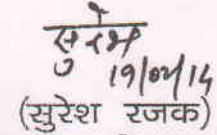 सुरेश
19/02/14
(सुरेश रजक)